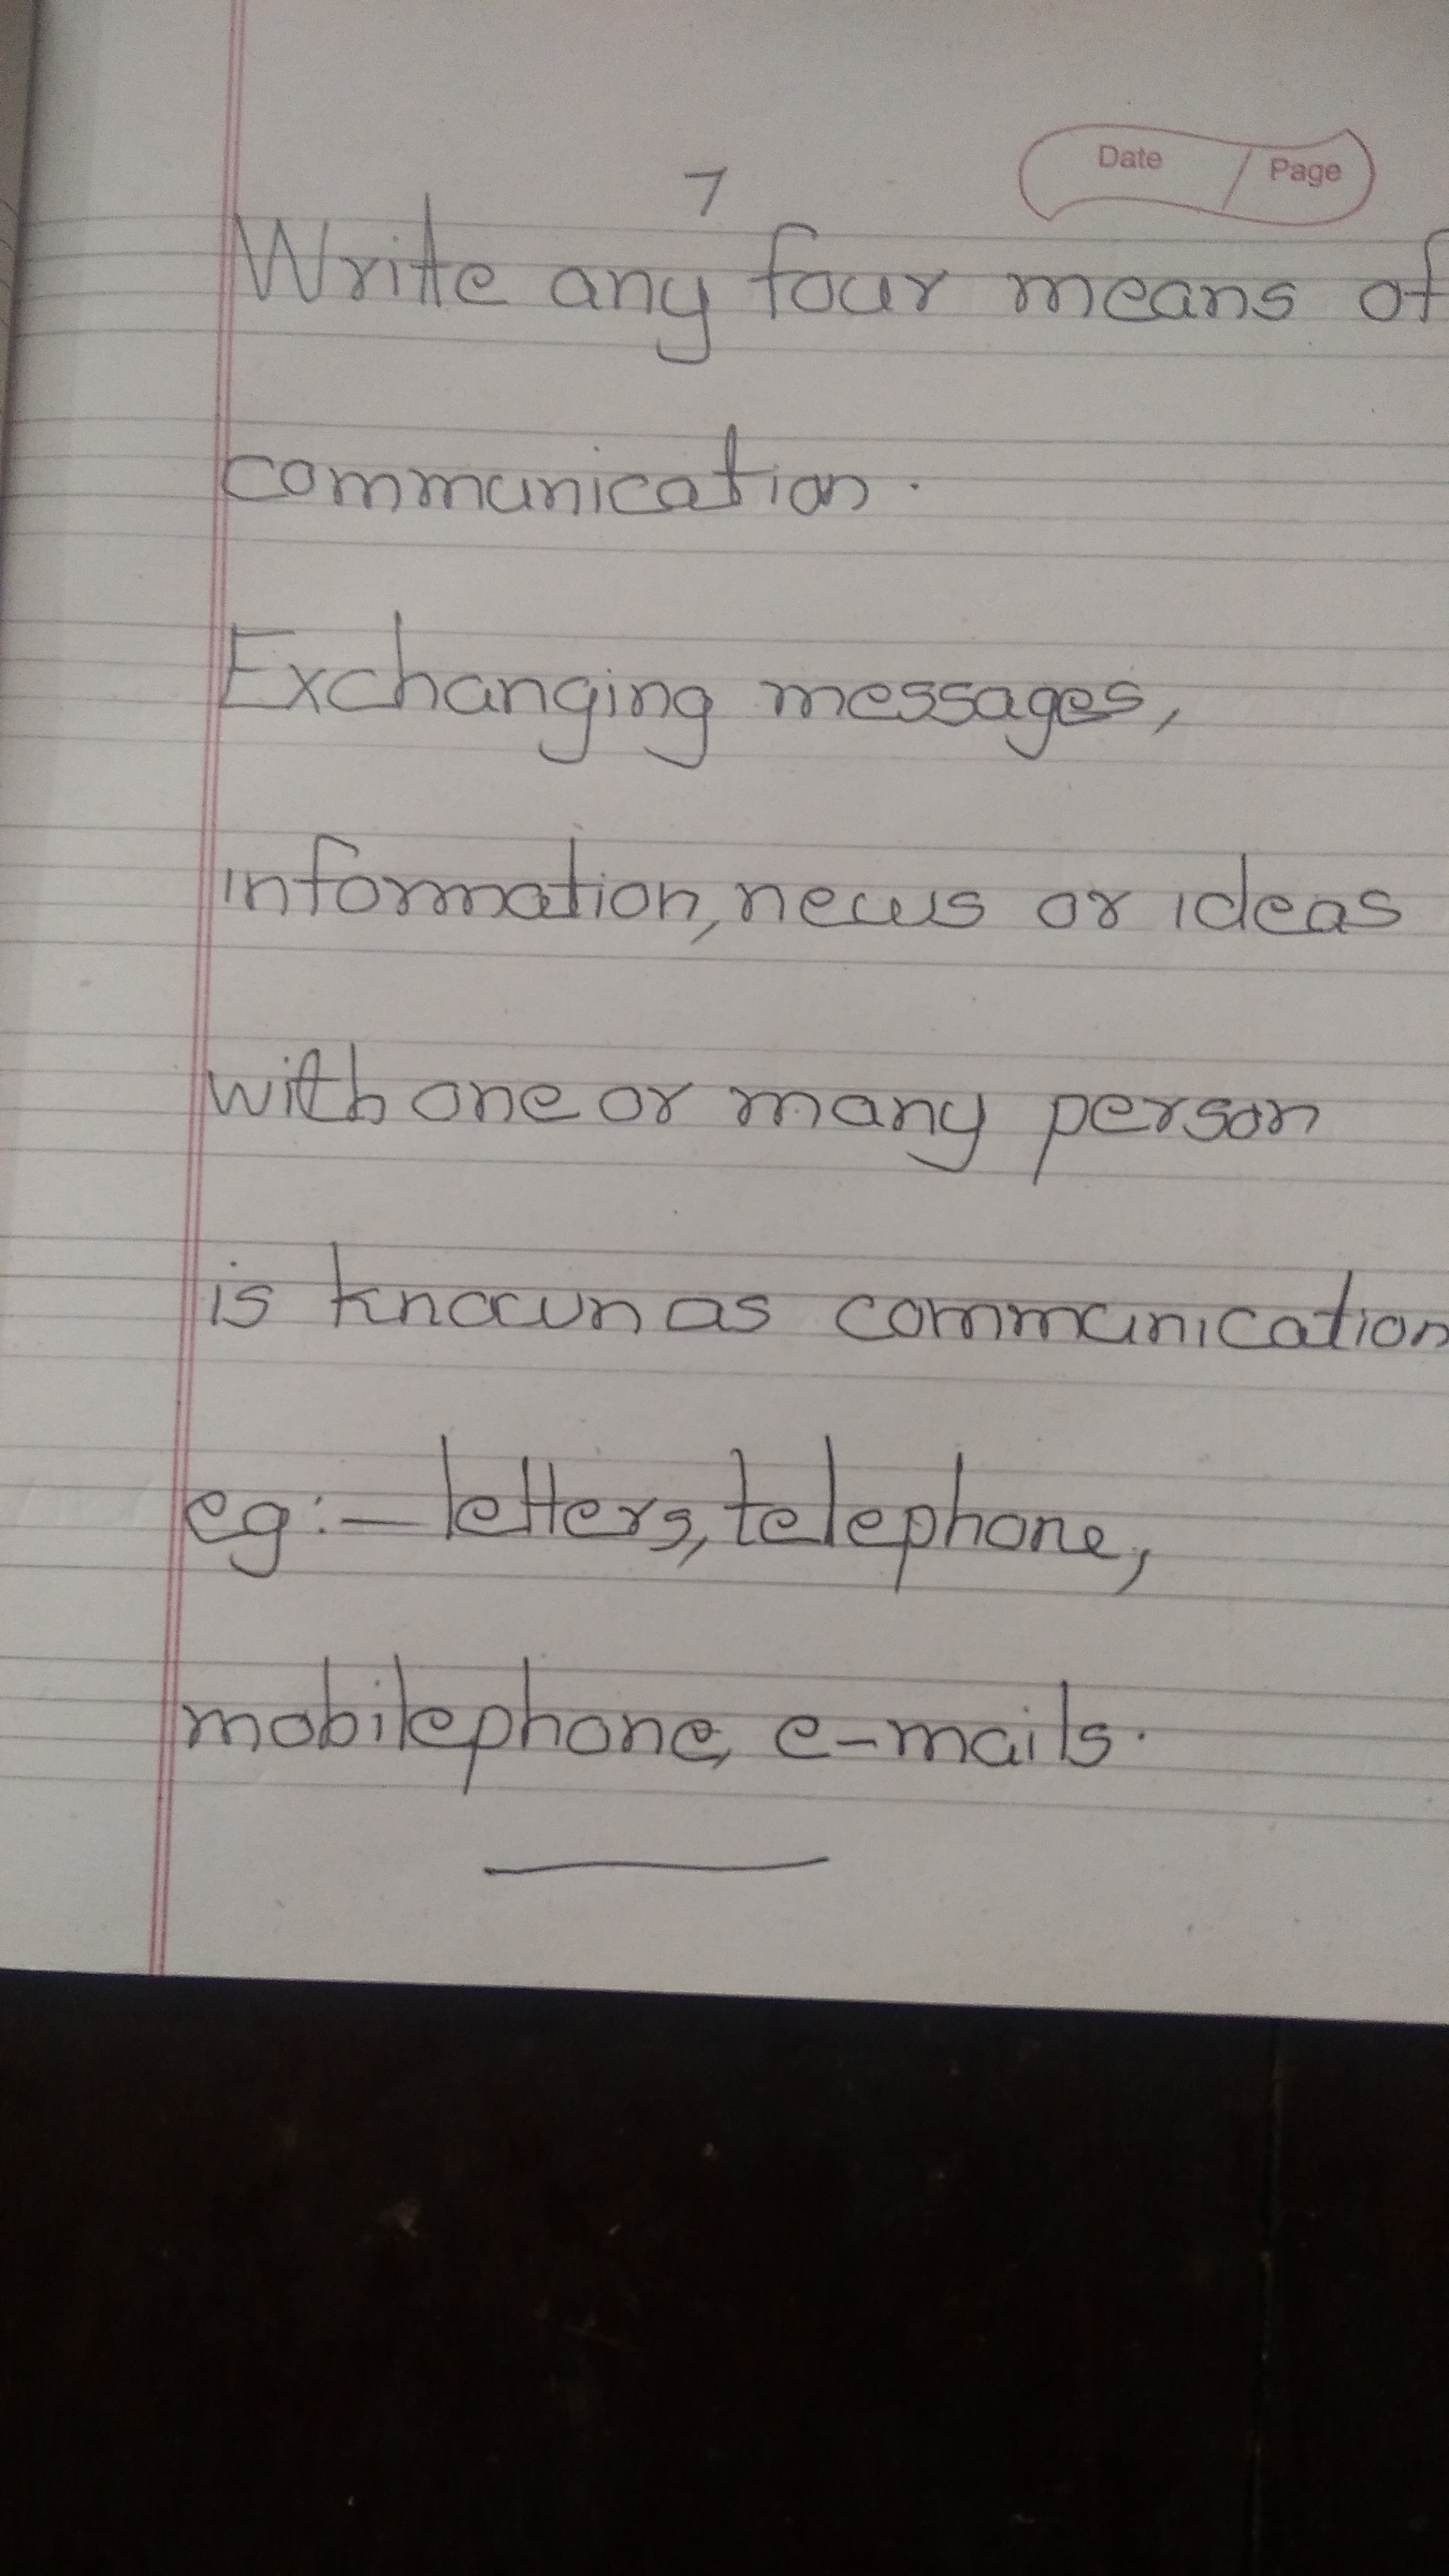 Date / Page
7
Write any four means of
communication.
Exchanging messages,
information, news or ideas
with one or many person
is known as communication
eg:- letters, telephone,
mobilephone, e-mails.